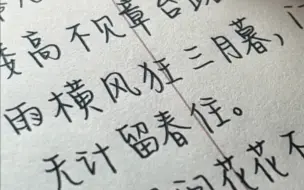 楼高不见章台路
雨横风狂三月暮，
无计留春住。
问花花不